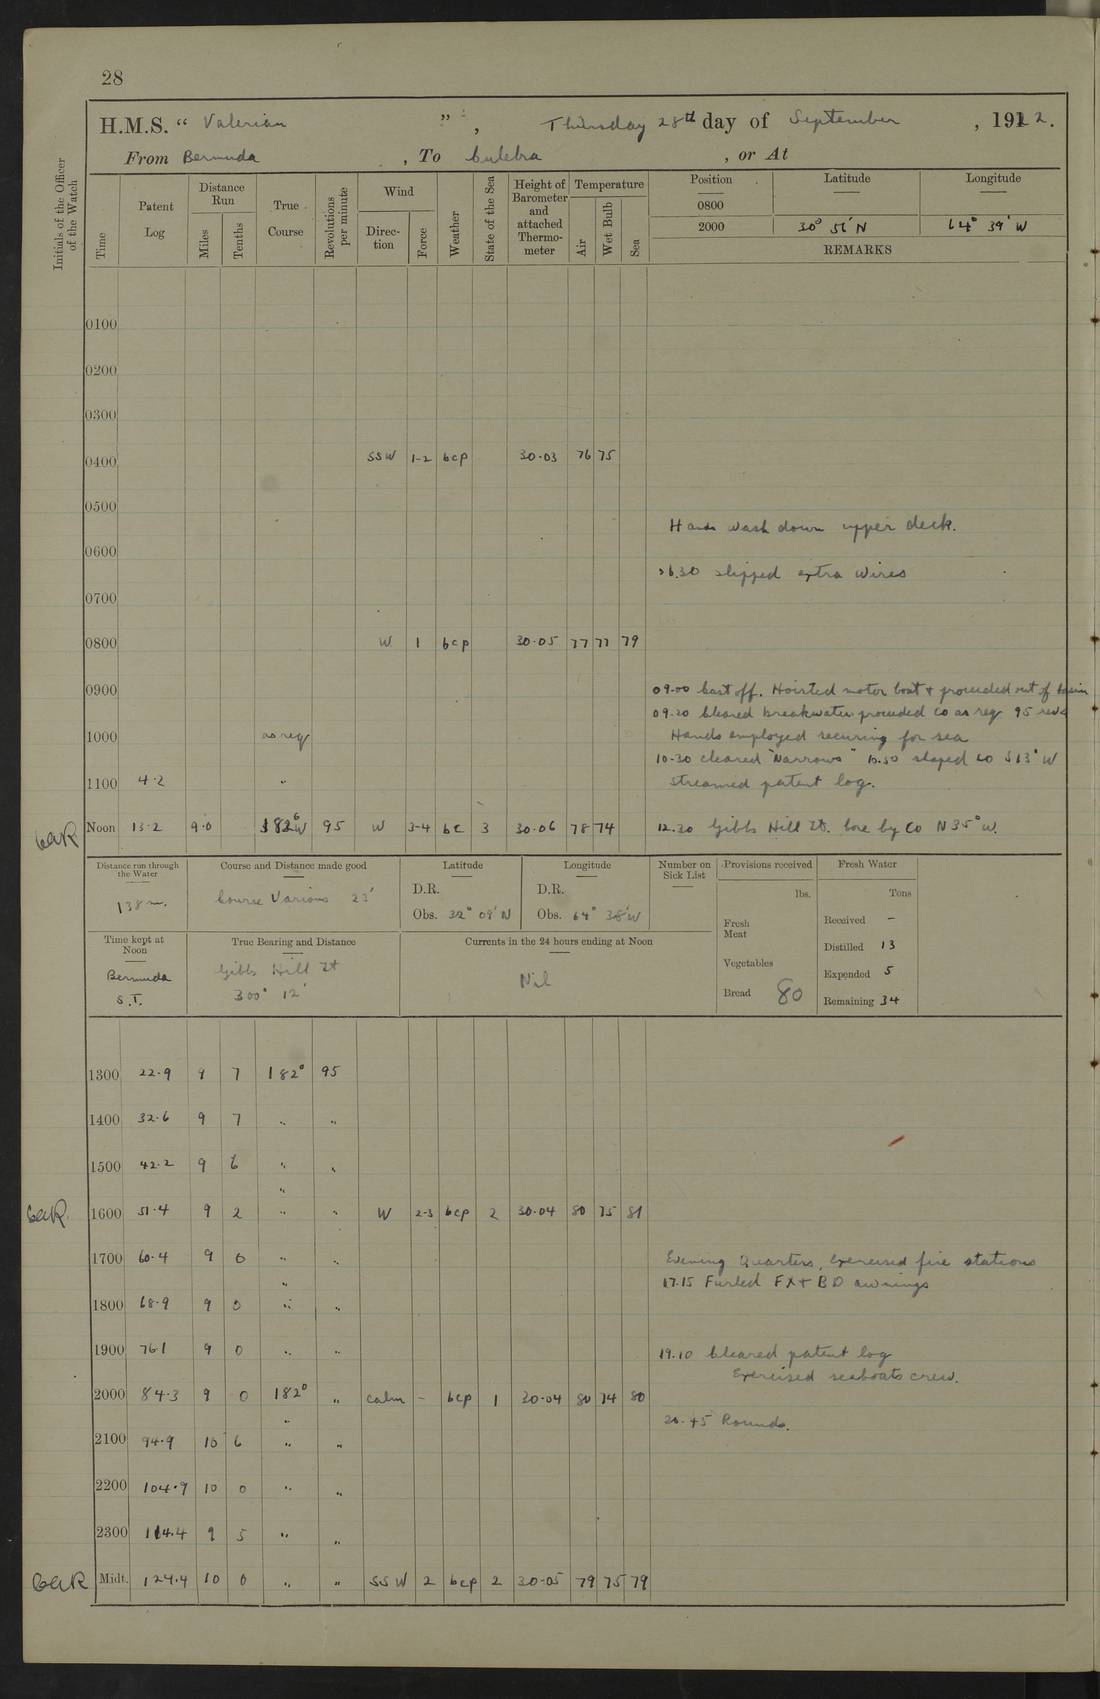 28
H.M.S. " Valerian ", Thursday 28th day of September, 1922.
From Bermuda, To Culebra, or At
Initials of the Officer of the Watch
Time
Patent Log
Distance Run
Miles
Tenths
True Course
Revolutions per minute
Wind
Direc-tion
Force
Weather
State of the Sea
Height of Barometer and attached Thermo-meter
Temperature
Air
Wet Bulb
Sea
Position Latitude Longitude
0800
2000 30° 56' N 64° 39' W
REMARKS
0100
0200
0300
0400 SSW 1-2 bcp 30.03 76 75
0500
Hands wash down upper deck.
0600
06.30 slipped extra wires
0700
0800 W 1 bcp 30.05 77 77 79
0900 09.00 Cast off. Hoisted motor boat & proceeded out of basin
09.20 Cleared breakwater proceeded Co as req 95 revs
1000 as req Hands employed securing for sea
10.30 cleared "Narrows" 10.50 shaped Co S13°W
1100 4.2 " Streamed patent log.
GaR Noon 13.2 9.0 W 95 W 3-4 bc 3 30.06 78 74 12.20 Gibbs Hill Lt. bore by Co N35°W.
Distance run through the Water
138 m.
Course and Distance made good
Course Various 23'
Latitude
D.R.
Obs. 32° 08' N
Longitude
D.R.
Obs. 64° 38' W
Number on Sick List
Provisions received
lbs.
Fresh Meat
Vegetables
Bread 80
Fresh Water
Tons
Received -
Distilled 13
Expended 5
Remaining 34
Time kept at Noon
Bermuda
S.T.
True Bearing and Distance
Gibbs Hill Lt
300° 12'
Currents in the 24 hours ending at Noon
Nil
1300 22.9 9 7 182° 95
1400 32.6 9 7 " "
1500 42.2 9 6 " "
"
GaR 1600 51.4 9 2 " " W 2-3 bcp 2 30.04 80 75 81
1700 60.4 9 0 " " Evening Quarters, Exercised fire stations
" 17.15 Furled FX & BD awnings
1800 68.9 9 0 " "
1900 76.1 9 0 " " 19.10 Cleared patent log
Exercised seaboats crew.
2000 84.3 9 0 182° " calm - bcp 1 30.04 80 74 80
" 20.45 Rounds.
2100 94.9 10 6 " "
2200 104.9 10 0 " "
2300 114.4 9 5 " "
GaR Midt. 124.4 10 0 " " SSW 2 bcp 2 30.05 79 75 79